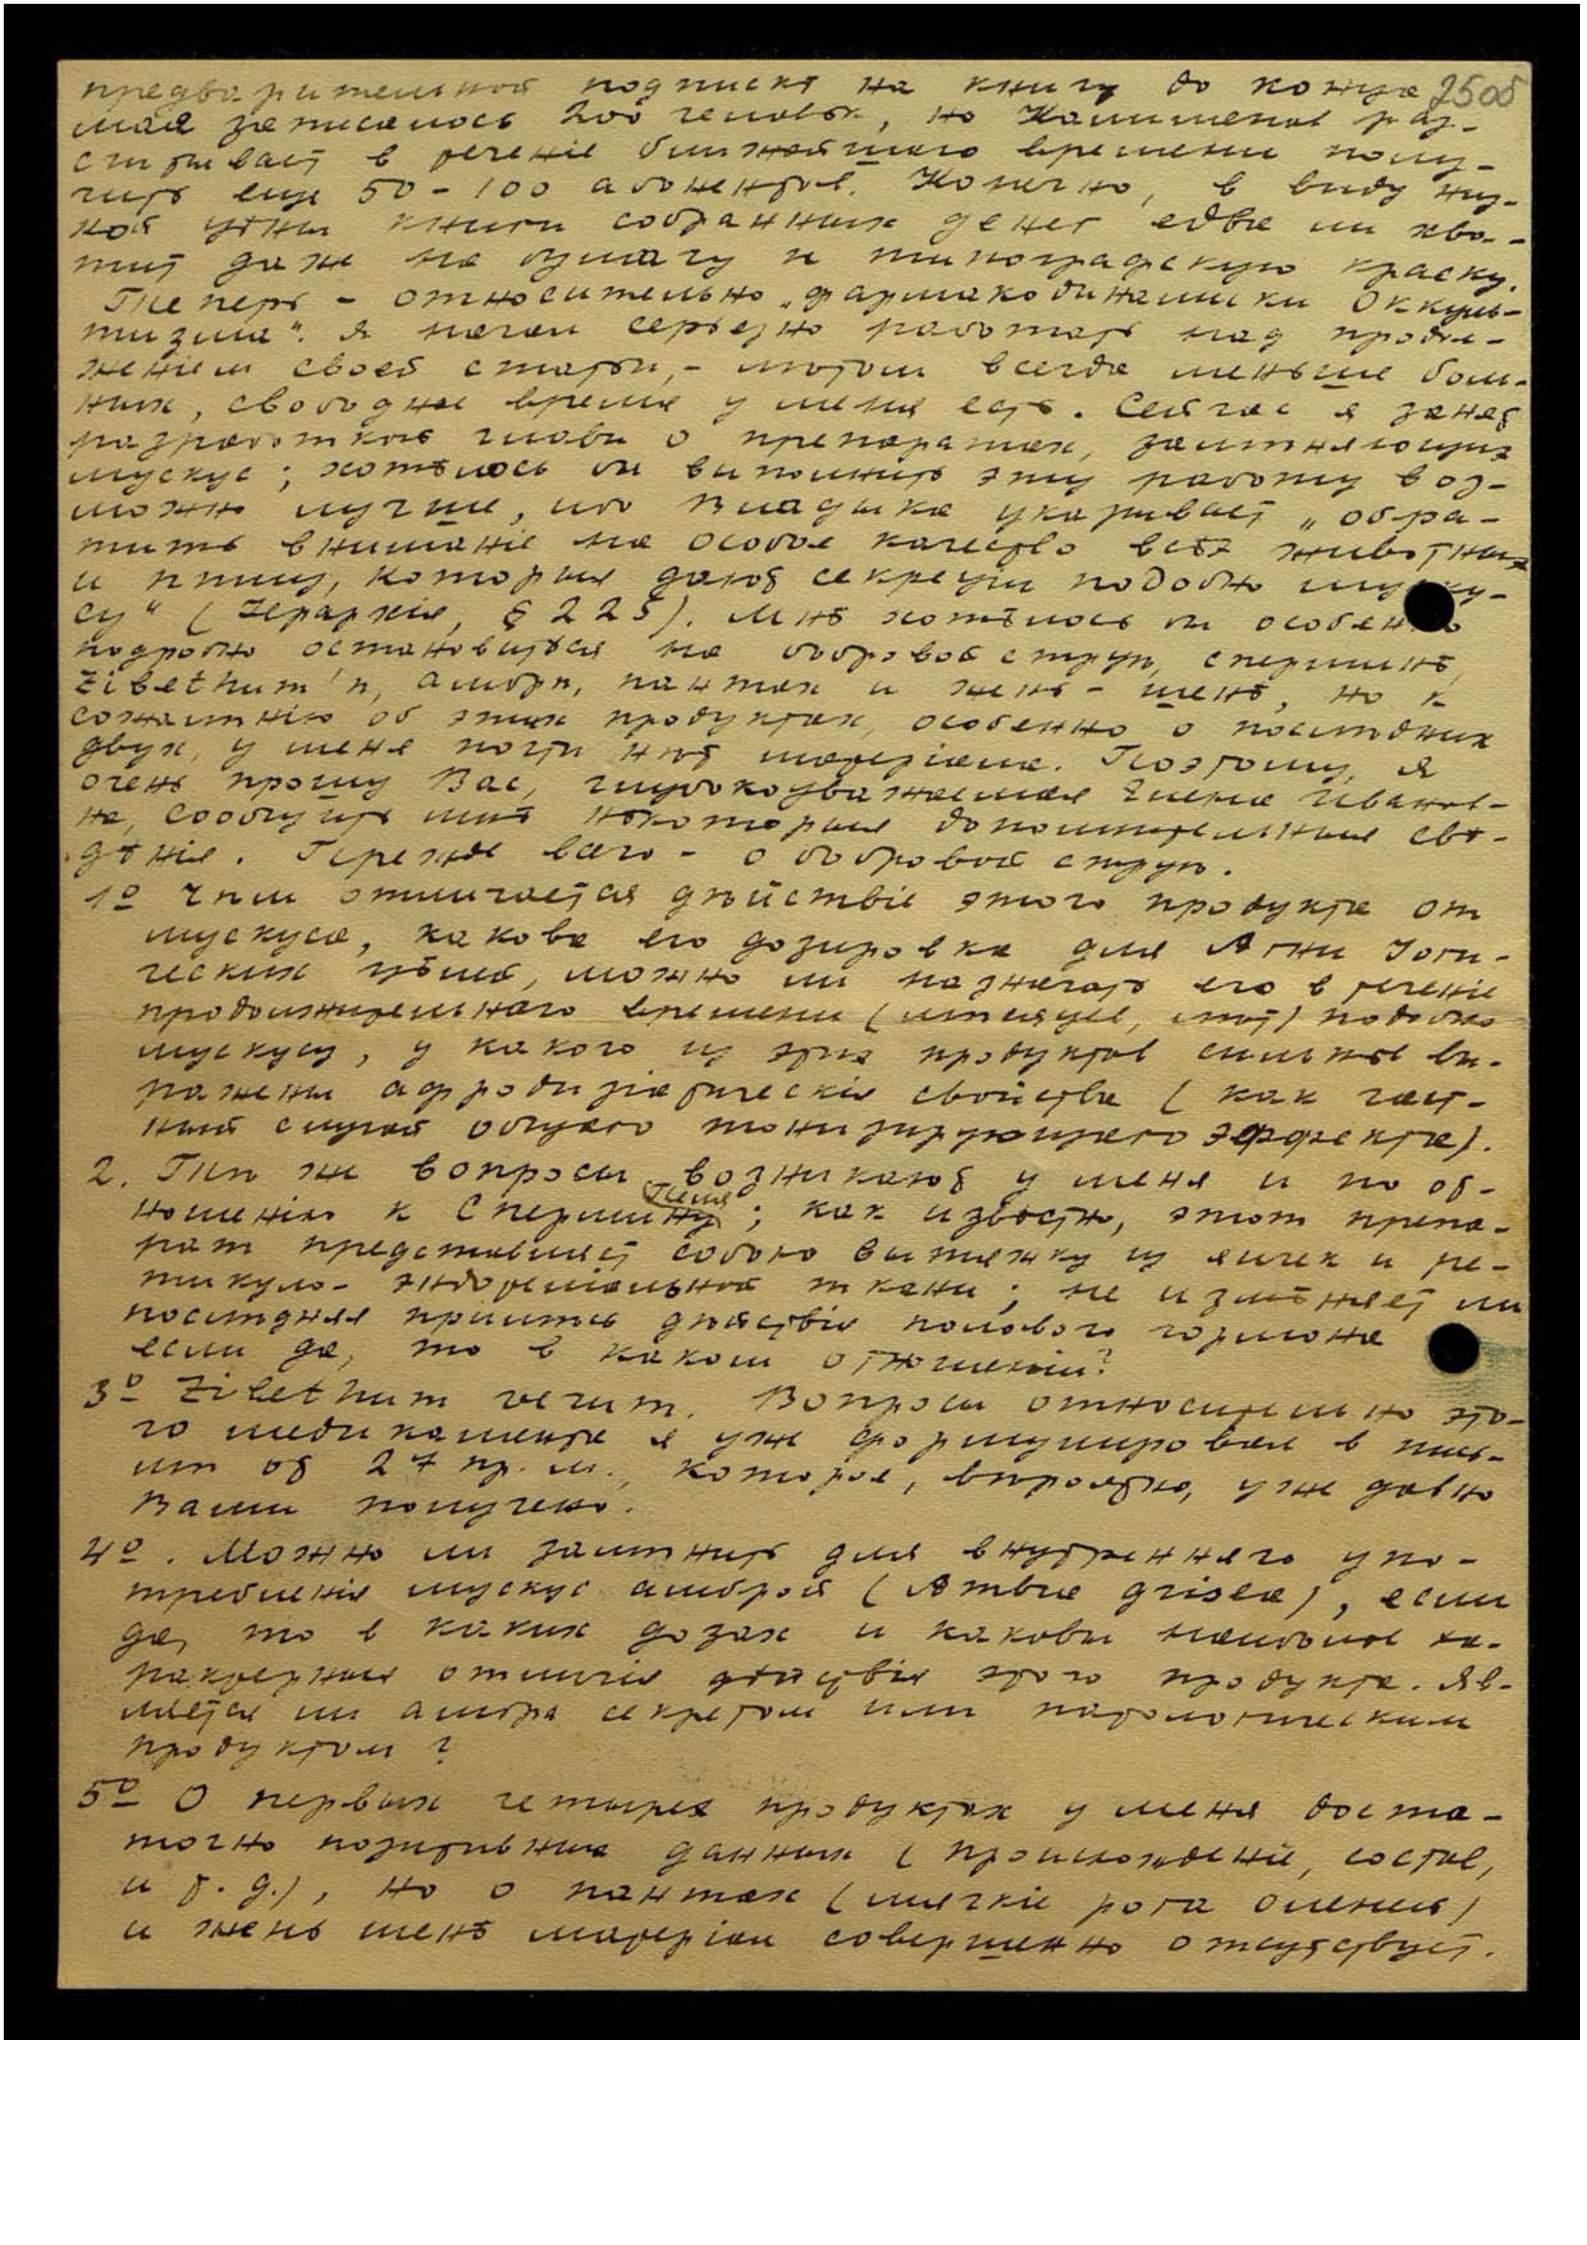 25об
предварительной подпискѣ на книгу до конца
мая записалось 200 человѣк, но Клишменов раз-
считывает в теченіе ближайшаго времени полу-
чить еще 50-100 абонентов. Конечно, в виду низ-
кой цѣны книги собранных денег едва ли хва-
тит даже на бумагу и типографскую краску.
Теперь - относительно „фармакодинамики Оккуль-
тизма". Я начал серьезно работать над продол-
женіем своей статьи, - лѣтом всегда меньше боль-
ных, свободное время у меня есть. Сейчас я занят
разработкой главы о препаратах, замѣняющих
мускус; хотѣлось бы выполнить эту работу воз-
можно лучше, ибо Владыка указывает „обра-
тить вниманіе на особое качество всѣх животных
и птиц, которыя дают секреціи подобно муску-
су" (Іерархія, § 225). Мнѣ хотѣлось бы особенно
подробно остановиться на бобровой струѣ, сперминѣ,
Zibethum'ѣ, амбрѣ, пантах и жень-шенѣ, но к
сожалѣнію об этих продуктах, особенно о послѣдних
двух, у меня почти нѣт матеріала. Поэтому, я
очень прошу Вас, глубокоуважаемая Елена Иванов-
на, сообщить мнѣ нѣкоторыя дополнительныя свѣ-
дѣнія. Прежде всего - о бобровой струѣ.
1º Чѣм отличается дѣйствіе этого продукта от
мускуса, какова его дозировка для Агни Іоги-
ческих цѣлей, можно ли назначать его в теченіе
продолжительнаго времени (мѣсяцев, лѣт) подобно
мускусу, у какого из этих продуктов сильнѣе вы-
ражены афродизіатическія свойства (как част-
ный случай общаго тонизирующаго эффекта).
2. Тѣ же вопросы возникают у меня и по от-
ношенію к Спермину ; как извѣстно, этот препа-
рат представляет собою вытяжку из яичек и ре-
тикуло-эндотеліальной ткани; не измѣняет ли
послѣдняя примѣсь дѣйствія полового гормона
если да, то в каком отношеніи?
3º Zibethum verum. Вопросы относительно это-
го медикамента я уже формулировал в пись-
мѣ от 27 пр. м., которое, вѣроятно, уже давно
Вами получено.
4º. Можно ли замѣнить для внутренняго упо-
требленія мускус амброй (Ambra grisea), если
да, то в каких дозах и каковы наиболѣе ха-
рактерныя отличія дѣйствія этого продукта. Яв-
ляется ли амбра секретом или патологическим
продуктом?
5º О первых четырех продуктах у меня доста-
точно позитивных данных (происхожденіе, состав,
и т. д.), но о пантах (мягкіе рога оленей)
и жень шенѣ матеріал совершенно отсутствует.